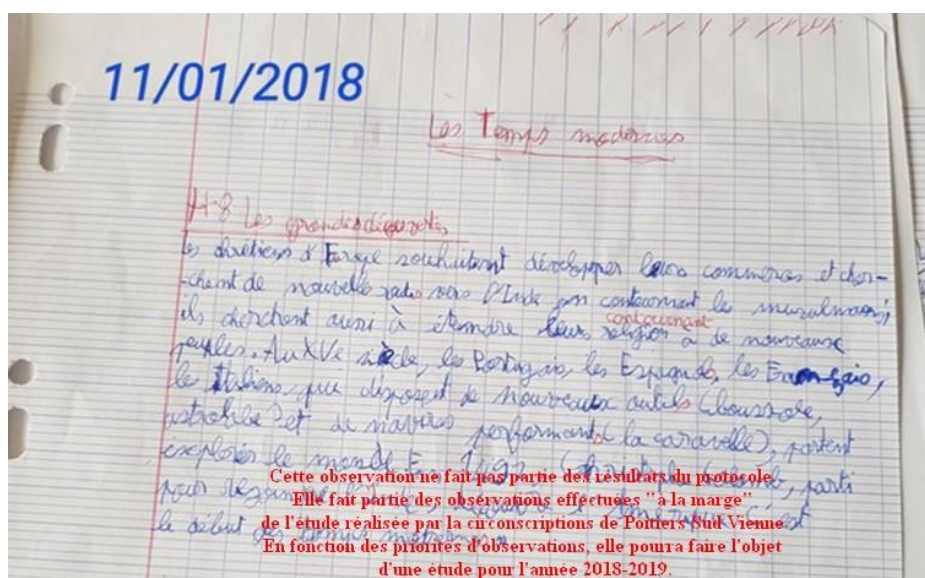 11/01/2018
Les Temps modernes
H-8 Les grandes découvertes
les chrétiens d'Europe souhaitent développer leurs commerces et cher-
-chent de nouvelle vers l'Inde en contournant les musulmans;
contournant
ils cherchent aussi à étendre leurs religion à de nouveaux
peuples. Au XVe siècle, les Portugais, les Espagnols, les Français,
les Italiens, que disposent de nouveaux outils (boussole,
astrolabe) et de navires performants (la caravelle), partent
explorer le monde. En Christophe Colomb, parti
pour
le début des temps modernes.
Cette observation ne fait pas partie des résultats du protocole.
Elle fait partie des observations effectuées "à la marge"
de l'étude réalisée par la circonscriptions de Poitiers Sud Vienne.
En fonction des priorités d'observations, elle pourra faire l'objet
d'une étude pour l'année 2018-2019.